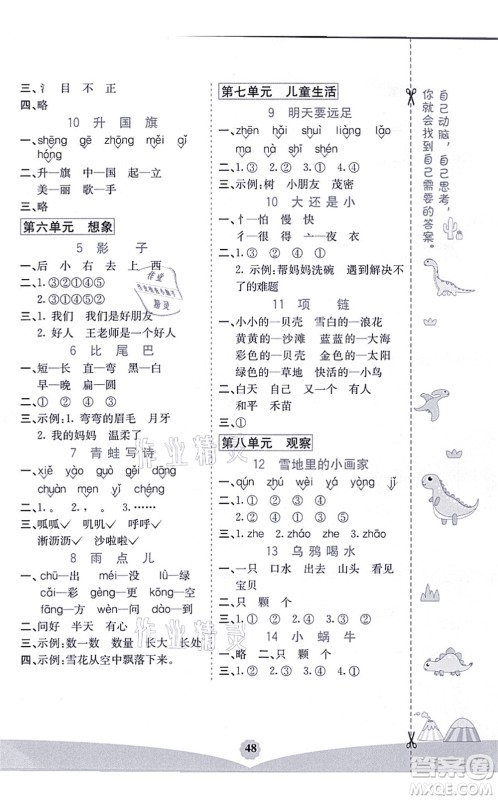 三、氵 目 不 正
四、略
10 升 国 旗
一、shēng gē zhōng měi gǎi
hóng
二、升—旗 中—国 起—立
美—丽 歌—手
三、略
第六单元 想象
5 影 子
一、后 小 右 去 上 西
二、1. ③①②④⑤
2. ⑤③①②④
三、1. 我们 我们是好朋友
2. 好人 王老师是一个好人
6 比 尾 巴
一、短—长 直—弯 黑—白
早—晚 扁—圆
二、③
三、示例：1. 弯弯的眉毛 月牙
2. 我的妈妈 温柔了
7 青蛙写诗
一、
二、③①②
三、呱呱✓ 叽叽✓ 呼呼✓
淅沥沥✓ 沙啦啦✓
8 雨 点 儿
一、chū—出 méi—没 lǜ—绿
cǎi—彩 gèng—更 kāi—开
fāng—方 wèn—问 dào—到
二、问好 半天 有心
三、示例：数一数 数量 长大 长处
四、示例：雪花从空中飘落下来。
第七单元 儿童生活
9 明天要远足
一、
二、1. ①③ 2. ①② 3. ①④
三、示例：树 小朋友 茂密
10 大 还 是 小
一、忄—怕 慢 情 快
彳—很 得 往 行
二、1. ③ ① ②
2. 示例：帮妈妈洗碗 遇到不了
的难题
11 项 链
一、小小的—贝壳 雪白的—浪花
黄黄的—沙滩 蓝蓝的—大海
彩色的—贝壳 金色的—太阳
绿色的—草地 快活的—小娃娃
二、白天 其二 白云 此人
和平 禾苗
三、①
第八单元 观察
12 雪地里的小画家
一、qún zhú yòng jǐ zhāo
二、① ② ① ②
三、③ ④ ② ①
13 乌鸦喝水
一、一只 口水 出山 山头 看见
宝贝
二、只 颗 个
三、1. ③ 2. ②
14 小 蜗 牛
一、略 二、只 颗 个
三、① ② ④ ③
自己动脑，自己思考，
你就会找到自己需要的答案。
48
作业精灵
作业精灵
作业
精灵
答案圈
MXEQ.COM